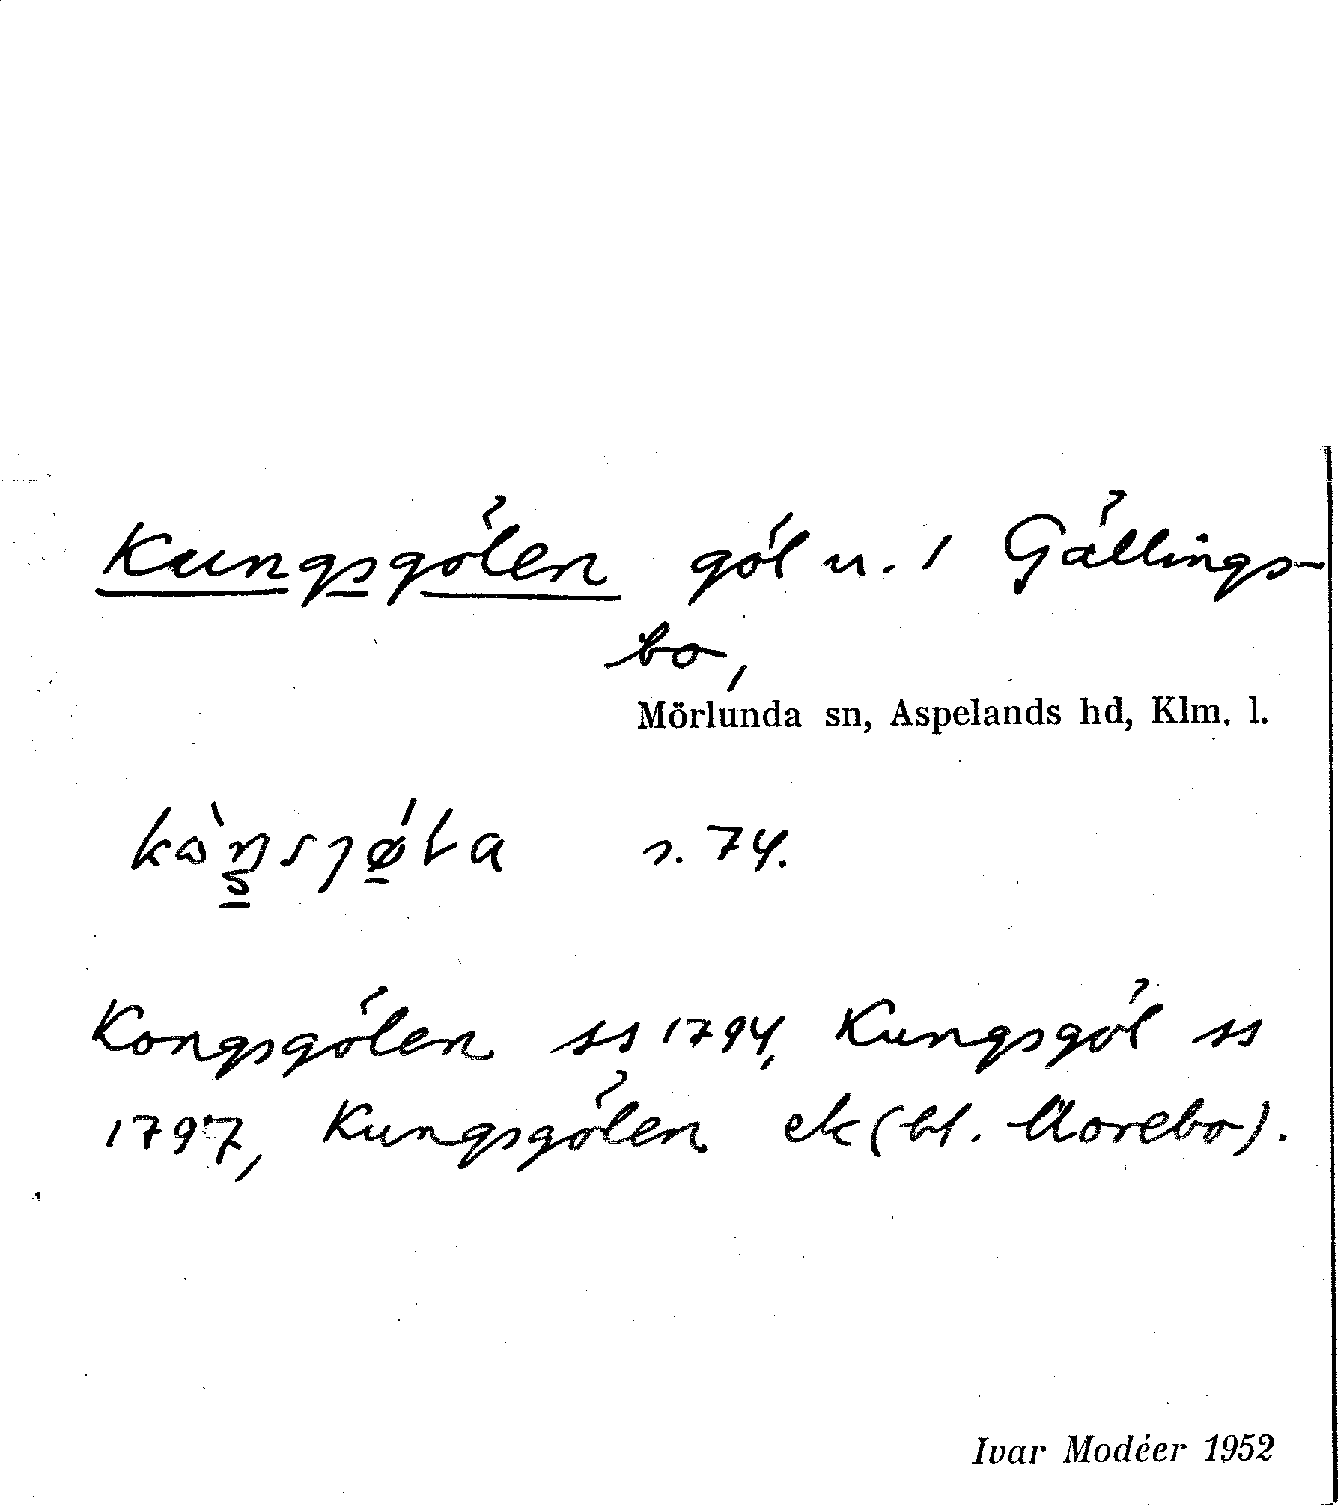 Kungsgölen göl u. 1 Gällings-
bo,
Mörlunda sn, Aspelands hd, Klm. l.
s. 74.
Kongsgölen ss 1794, Kungsgöl ss
1797, Kungsgölen ek (bl. Morebo).
Ivar Modéer 1952